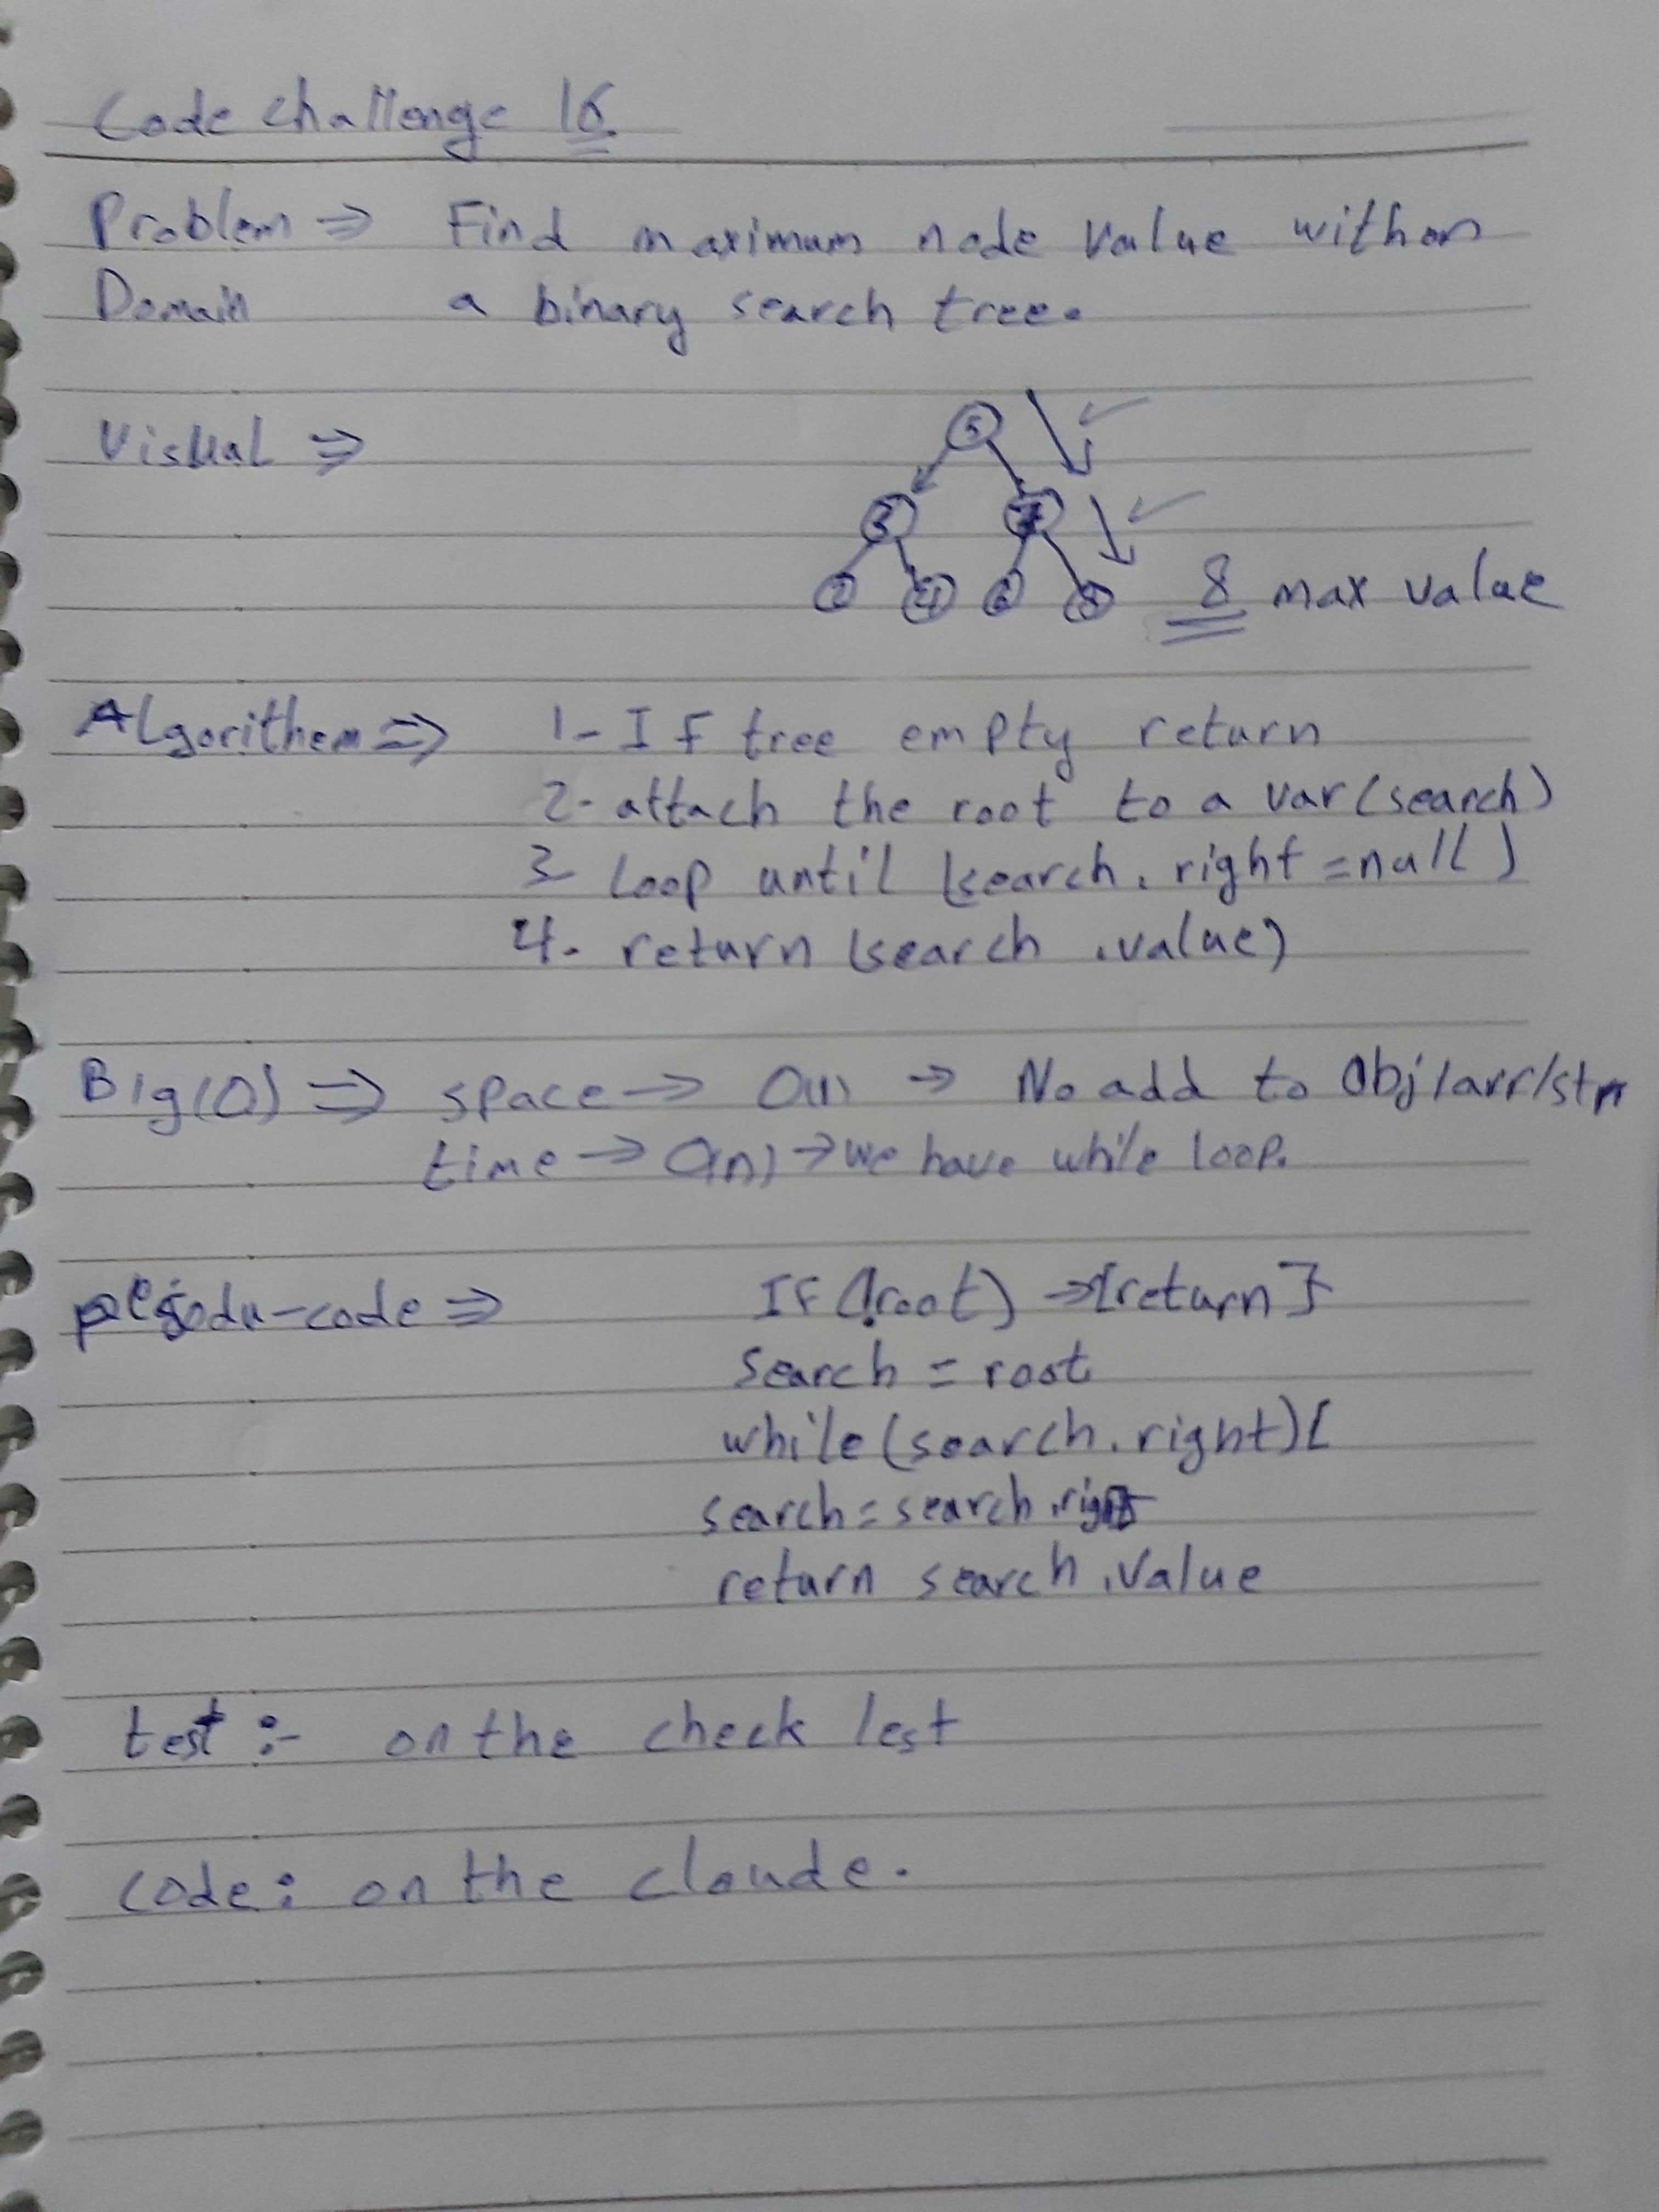 Code challenge 16
Problem ⇒ Find maximum node value within
Domain a binary search tree.
Visual ⇒
5
3 7
2 4 6 8 8 max value
Algorithem ⇒ 1- IF tree empty return
2- attach the root to a var (search)
3- Loop until (search. right =null)
4- return (search .value)
Big(O) ⇒ space → O(1) → No add to Obj/arr/str
time → O(n) → we have while loop.
-code ⇒ IF (!root) → {return}
search = root
while (search. right) {
search = search .right
return search .value
test :- on the check lest
code: on the cloude.